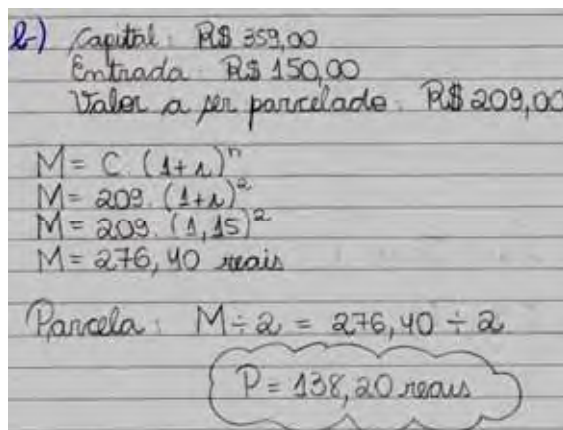 b-) Capital: R$ 359,00
Entrada: R$ 150,00
Valor a ser parcelado: R$ 209,00
M = C. (1+i)ⁿ
M = 209. (1+i)²
M = 209. (1,15)²
M = 276,40 reais
Parcela: M ÷ 2 = 276,40 ÷ 2
P = 138,20 reais